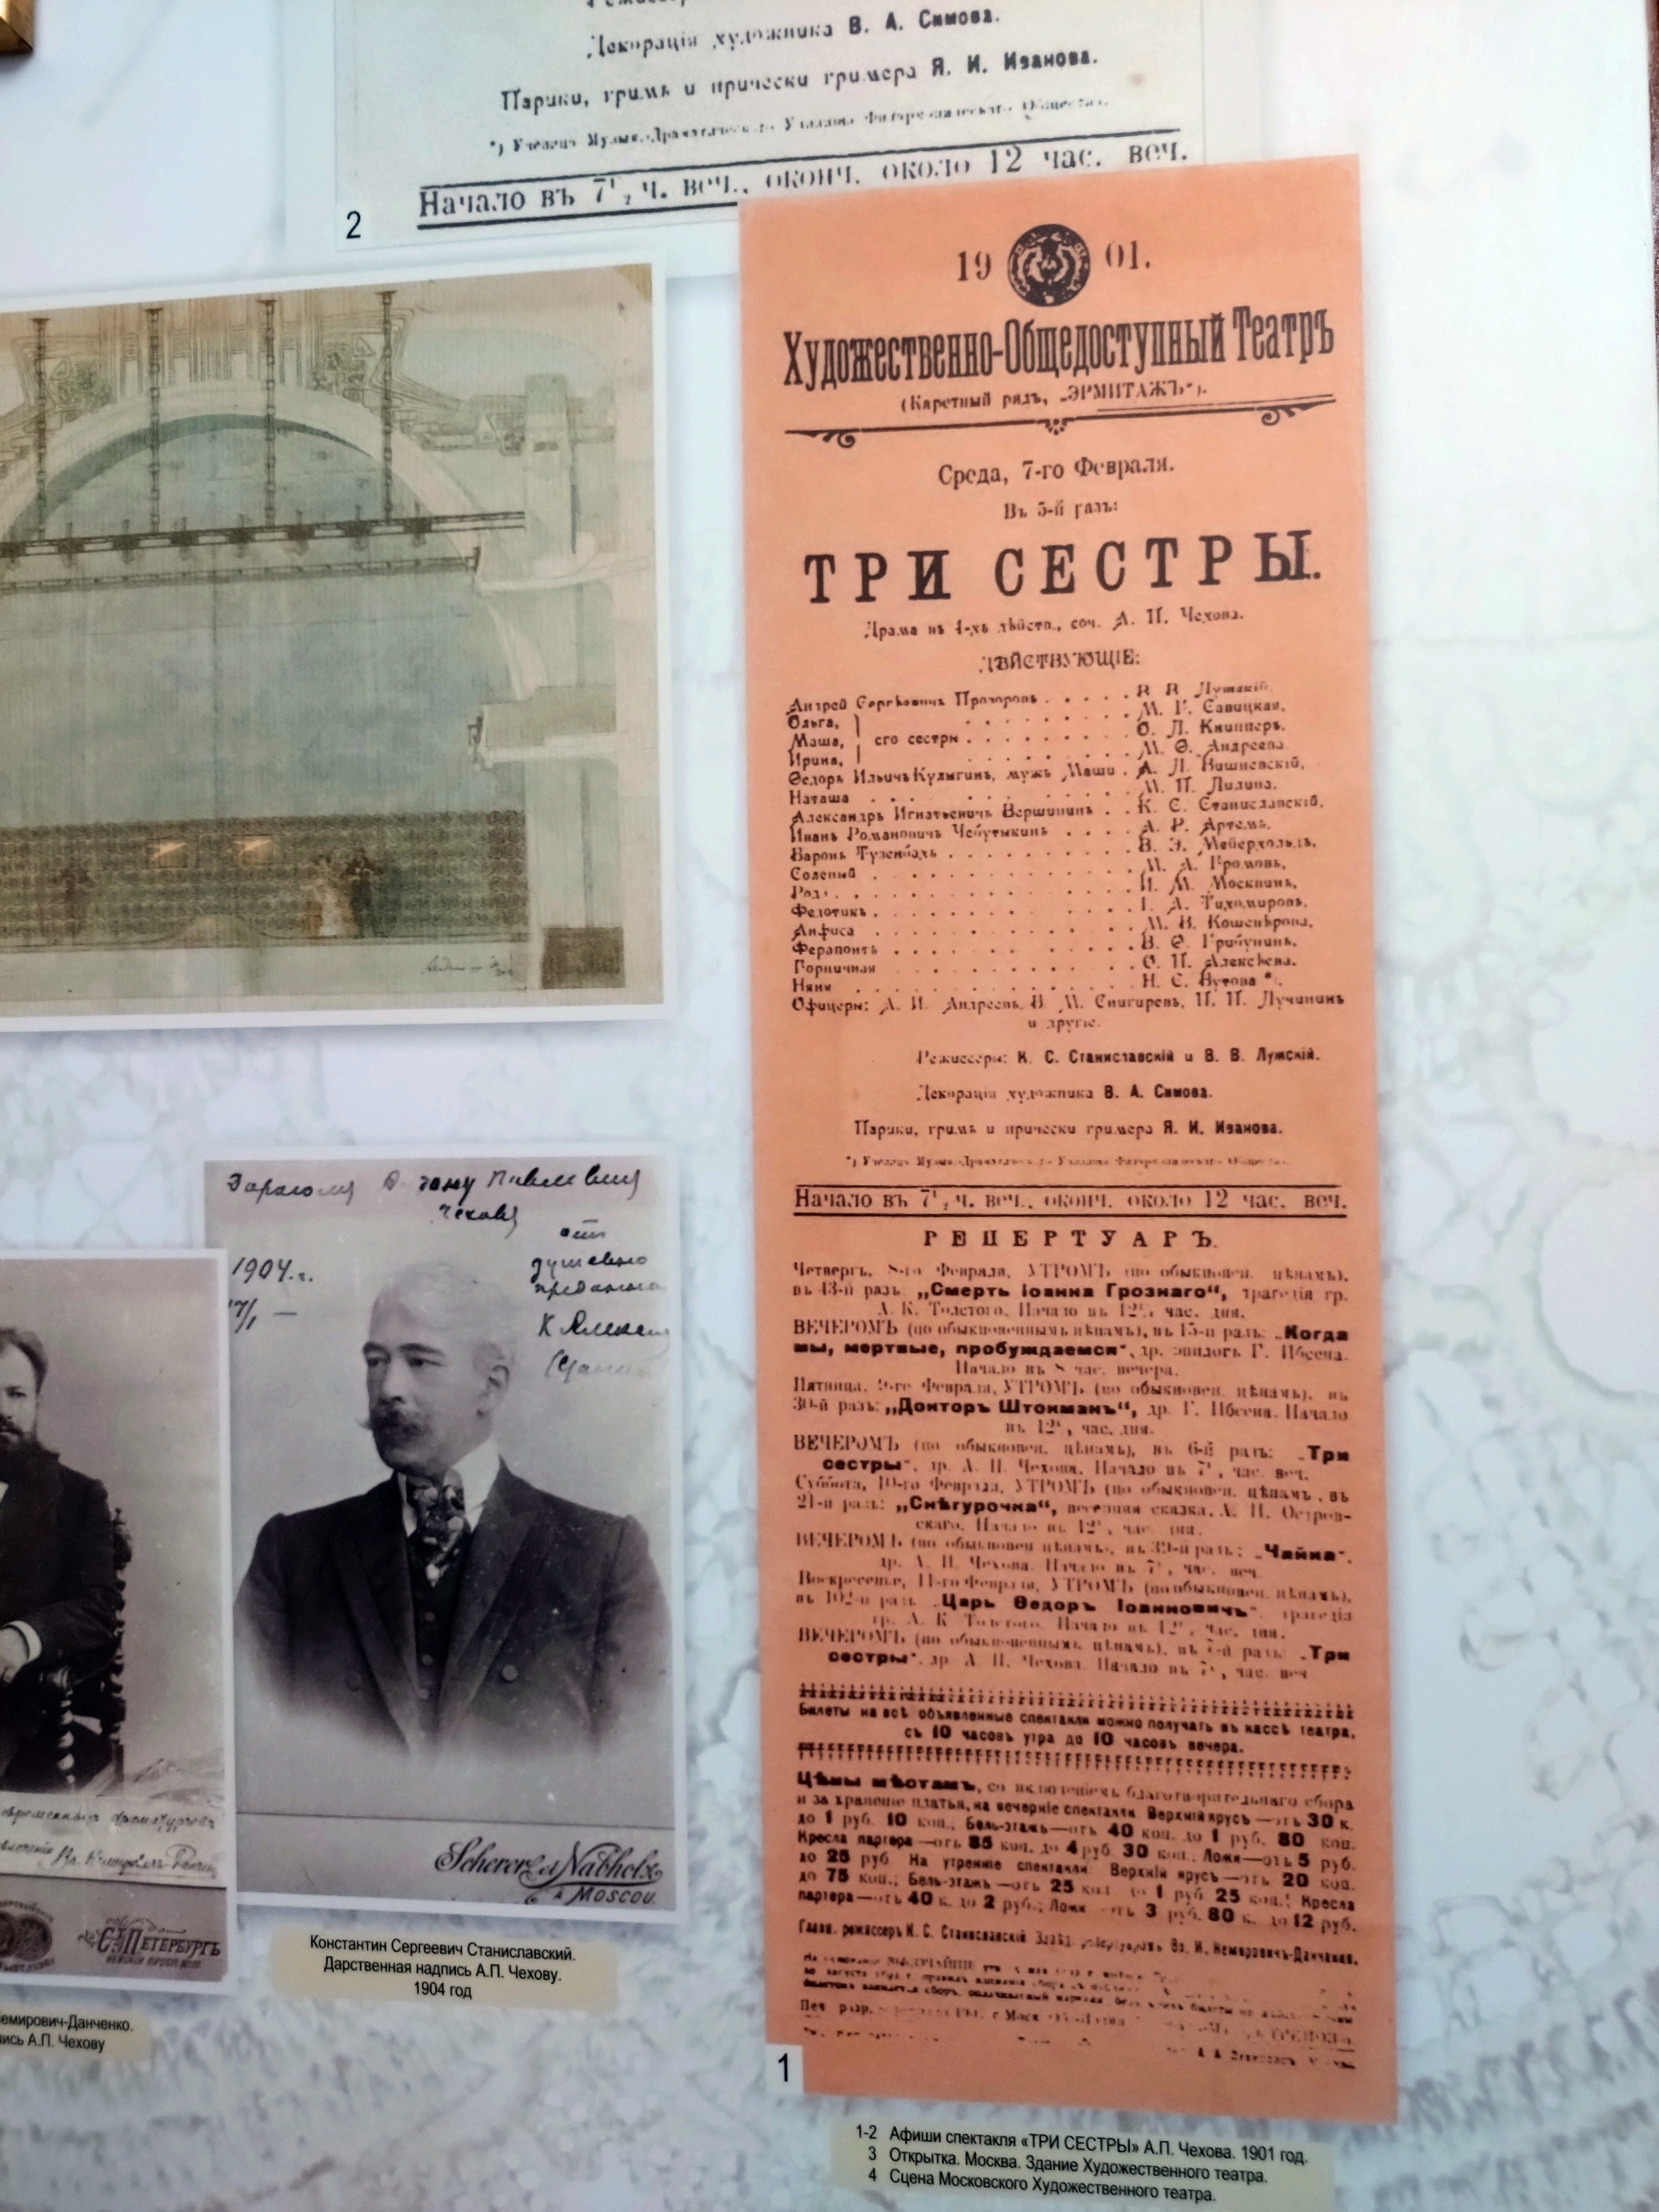 Декорація художника В. А. Симова.
Парики, гримъ и прически гримера Я. И. Иванова.
Начало въ 7½ ч. веч., оконч. около 12 час. веч.
2
19 01.
Художественно-Общедоступный Театръ
(Каретный рядъ, „ЭРМИТАЖЪ“).
Среда, 7-го Февраля.
Въ 5-й разъ:
ТРИ СЕСТРЫ.
Драма въ 4-хъ дѣйств., соч. А. П. Чехова.
ДѢЙСТВУЮЩІЕ:
Андрей Сергѣевичъ Прозоровъ . . . . . В. В. Лужскій.
Ольга, М. Г. Савицкая.
Маша, его сестры . . . . . . . . О. Л. Книпперъ.
Ирина, М. Ѳ. Андреева.
Ѳедоръ Ильичъ Кулыгинъ, мужъ Маши . А. Л. Вишневскій.
Наташа . . . . . . . . М. П. Лилина.
Александръ Игнатьевичъ Вершининъ . . К. С. Станиславскій.
Иванъ Романовичъ Чебутыкинъ . . . . А. Р. Артемъ.
Баронъ Тузенбахъ . . . . . . . . В. Э. Мейерхольдъ.
Соленый . . . . . . . . М. А. Громовъ.
Родэ . . . . . . . . И. М. Москвинъ.
Федотикъ . . . . . . . . І. А. Тихомировъ.
Анфиса . . . . . . . . М. В. Кошеверова.
Ферапонтъ . . . . . . . . В. Ѳ. Грибунинъ.
Горничная . . . . . . . . О. П. Алексѣева.
Няня . . . . . . . . Н. С. Бутова *).
Офицеры: А. И. Андреевъ, В. М. Снигиревъ, П. П. Лучининъ
и другіе.
Режиссеры: К. С. Станиславскій и В. В. Лужскій.
Декорація художника В. А. Симова.
Парики, гримъ и прически гримера Я. И. Иванова.
Начало въ 7½ ч. веч., оконч. около 12 час. веч.
РЕПЕРТУАРЪ.
Четвергъ, 8-го Февраля, УТРОМЪ (по обыкновен. цѣнамъ),
въ 43-й разъ: „Смерть Іоанна Грознаго“, трагедія гр.
А. К. Толстого. Начало въ 12½ час. дня.
ВЕЧЕРОМЪ (по обыкновеннымъ цѣнамъ), въ 15-й разъ: „Когда
мы, мертвые, пробуждаемся“, др. эпилогъ Г. Ибсена.
Начало въ 8 час. вечера.
Пятница, 9-го Февраля, УТРОМЪ (по обыкновен. цѣнамъ), въ
30-й разъ: „Докторъ Штокманъ“, др. Г. Ибсена. Начало
въ 12½ час. дня.
ВЕЧЕРОМЪ (по обыкновен. цѣнамъ), въ 6-й разъ: „Три
сестры“, др. А. П. Чехова. Начало въ 7½ час. веч.
Суббота, 10-го Февраля, УТРОМЪ (по обыкновен. цѣнамъ), въ
21-й разъ: „Снѣгурочка“, весенняя сказка, А. Н. Остров-
скаго. Начало въ 12½ час. дня.
ВЕЧЕРОМЪ (по обыкновен. цѣнамъ), въ 39-й разъ: „Чайка“,
др. А. П. Чехова. Начало въ 7½ час. веч.
Воскресенье, 11-го Февраля, УТРОМЪ (по обыкновен. цѣнамъ),
въ 102-й разъ „Царь Ѳедоръ Іоанновичъ“, трагедія
гр. А. К. Толстого. Начало въ 12½ час. дня.
ВЕЧЕРОМЪ (по обыкновеннымъ цѣнамъ), въ 7-й разъ: „Три
сестры“, др. А. П. Чехова. Начало въ 7½ час. веч.
Билеты на всѣ объявленные спектакли можно получать въ кассѣ театра,
съ 10 часовъ утра до 10 часовъ вечера.
Цѣны мѣстамъ, со включеніемъ благотворительнаго сбора
и за храненіе платья, на вечерніе спектакли: Верхній ярусъ—отъ 30 к.
до 1 руб. 10 коп.; Бель-этажъ—отъ 40 коп. до 1 руб. 80 коп.
Кресла партера—отъ 85 коп. до 4 руб. 30 коп.; Ложи—отъ 5 руб.
до 25 руб. На утренніе спектакли: Верхній ярусъ—отъ 20 коп.
до 75 коп.; Бель-этажъ—отъ 25 коп. до 1 руб. 25 коп.; Кресла
партера—отъ 40 к. до 2 руб.; Ложи—отъ 3 руб. 80 к. до 12 руб.
Главн. режиссеръ К. С. Станиславскій Завѣд. репертуаромъ Вл. И. Немировичъ-Данченко.
1
1-2 Афиши спектакля «ТРИ СЕСТРЫ» А.П. Чехова. 1901 год.
3 Открытка. Москва. Здание Художественного театра.
4 Сцена Московского Художественного театра.
Дорогому Антону Павловичу
Чехову
отъ
душевно
преданнаго
1904.г.
17/1
К Алексѣев
Scherer & Nabholz
à Moscou.
Константин Сергеевич Станиславский.
Дарственная надпись А.П. Чехову.
1904 год
С.ПЕТЕРБУРГЪ
емирович-Данченко.
пись А.П. Чехову